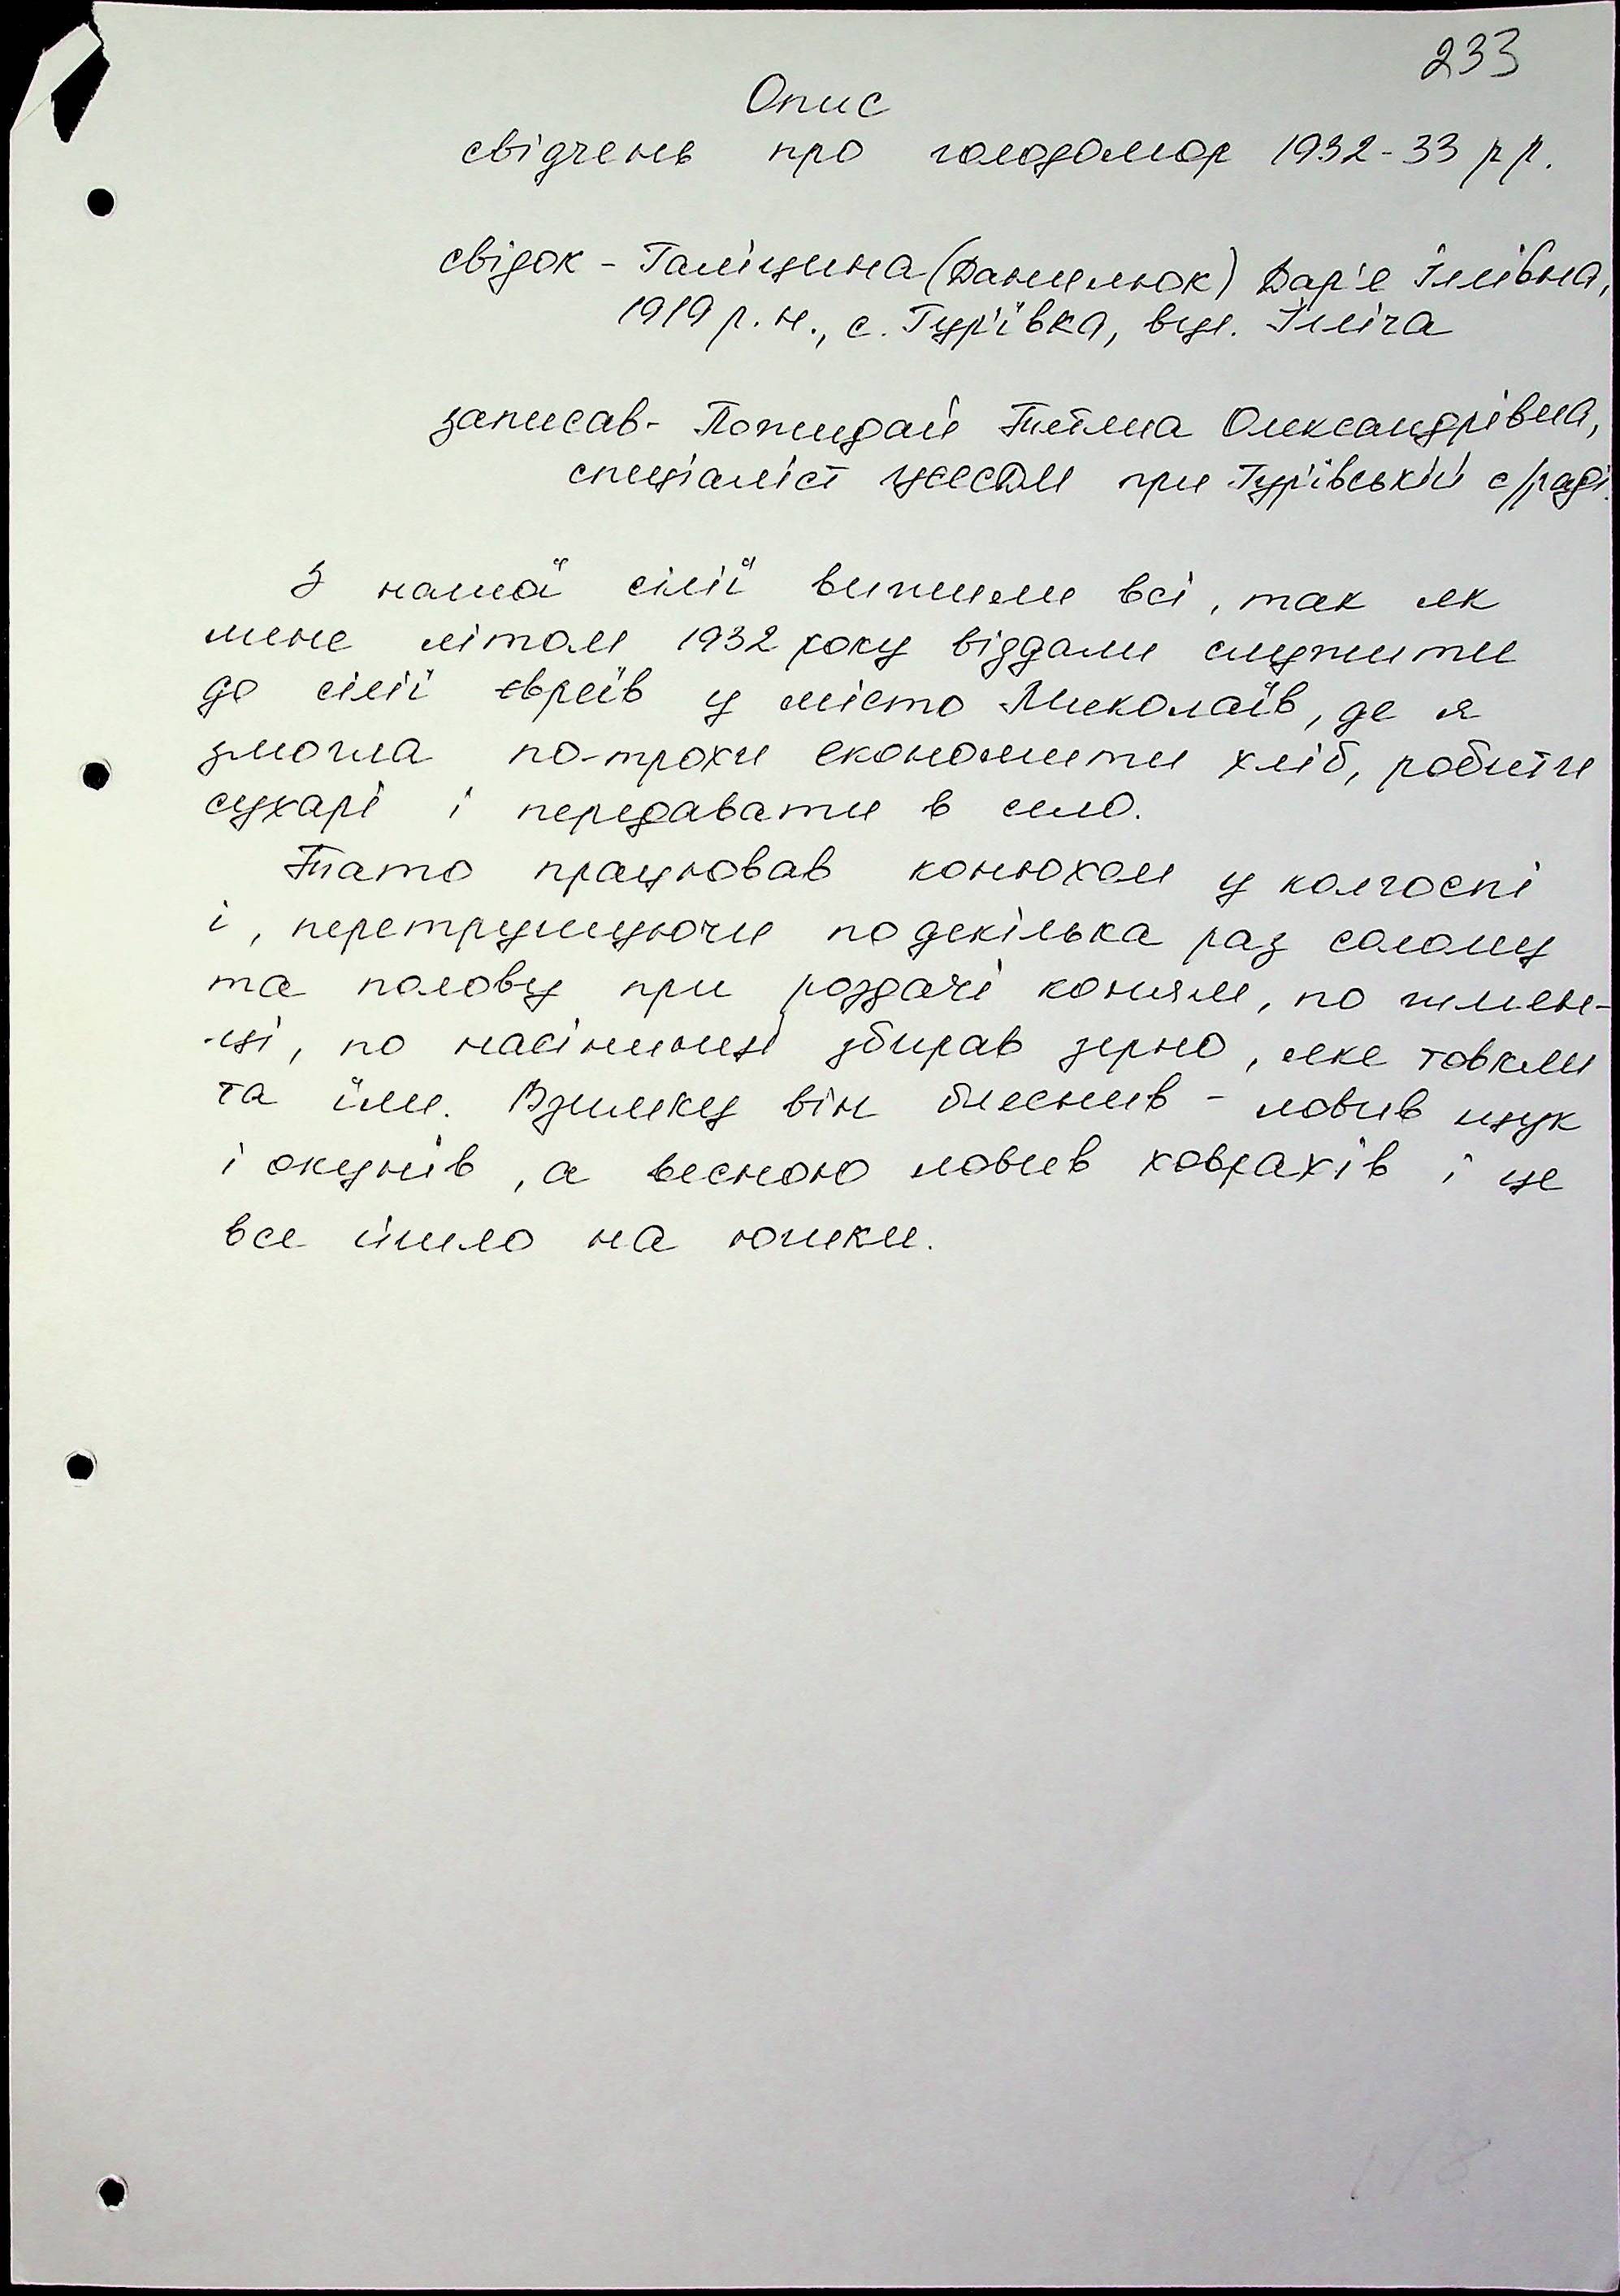 233
Опис
свідчень про голодомор 1932-33 рр.
свідок - Галіцина (Данилюк) Дар'я Іллівна,
1919 р.н., с. Гур'ївка, вул. Ілліча
записав - Пожидай Тетяна Олександрівна,
спеціаліст при Гур'ївській с/раді.
З нашої сім'ї вижили всі, так як
мене літом 1932 року віддали служити
до сім'ї євреїв у місто Миколаїв, де я
змогла по-трохи економити хліб, робити
сухарі і передавати в село.
Тато працював конюхом у колгоспі
і, перетрушуючи по декілька раз солому
та полову при роздачі коням, по жмень-
ці, по насінинці збирав зерно, яке товкли
та їли. Взимку він блеснив - ловив щук
і окунів, а весною ловив ховрахів і це
все йшло на юшки.